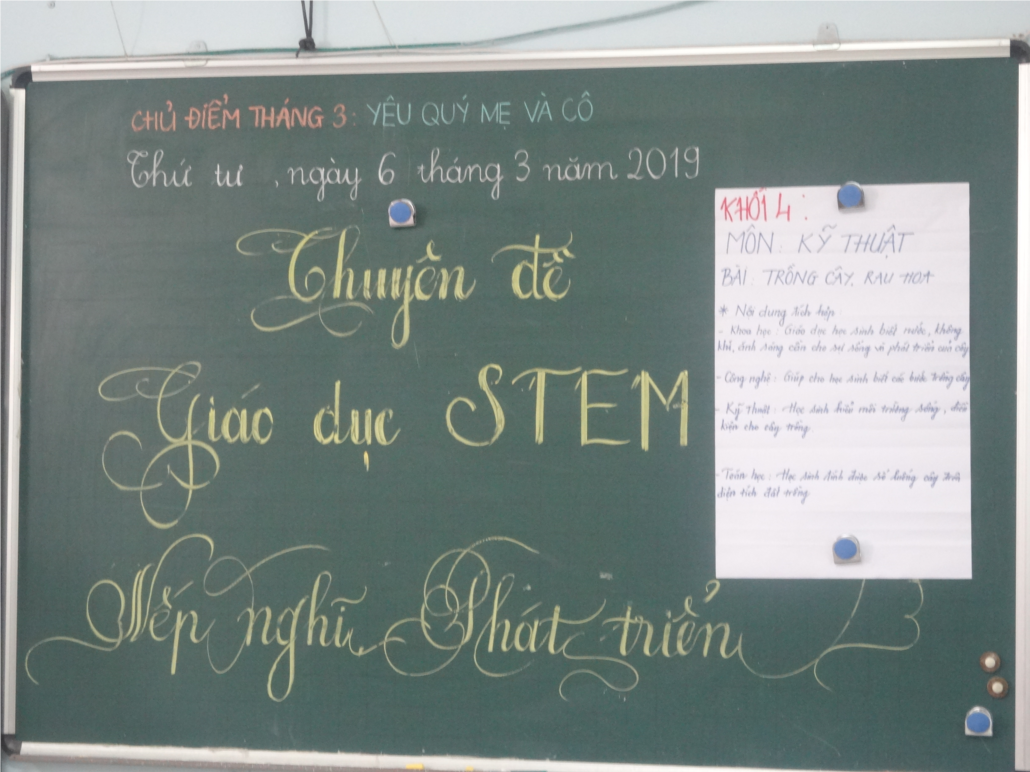 CHỦ ĐIỂM THÁNG 3: YÊU QUÝ MẸ VÀ CÔ
Thứ tư , ngày 6 tháng 3 năm 2019
Chuyên đề
Giáo dục STEM
Nếp nghĩ Phát triển
KHỐI 4 :
MÔN : KỸ THUẬT
BÀI : TRỒNG CÂY, RAU HOA
* Nội dung tích hợp
- Khoa học : Giáo dục học sinh biết nước, không
khí, ánh sáng cần cho sự sống và phát triển của cây
- Công nghệ : Giúp cho học sinh biết các bước trồng cây
- Kỹ thuật : Học sinh hiểu môi trường sống , điều
kiện cho cây trồng
- Toán học : Học sinh tính được số lượng cây trên
diện tích đất trồng